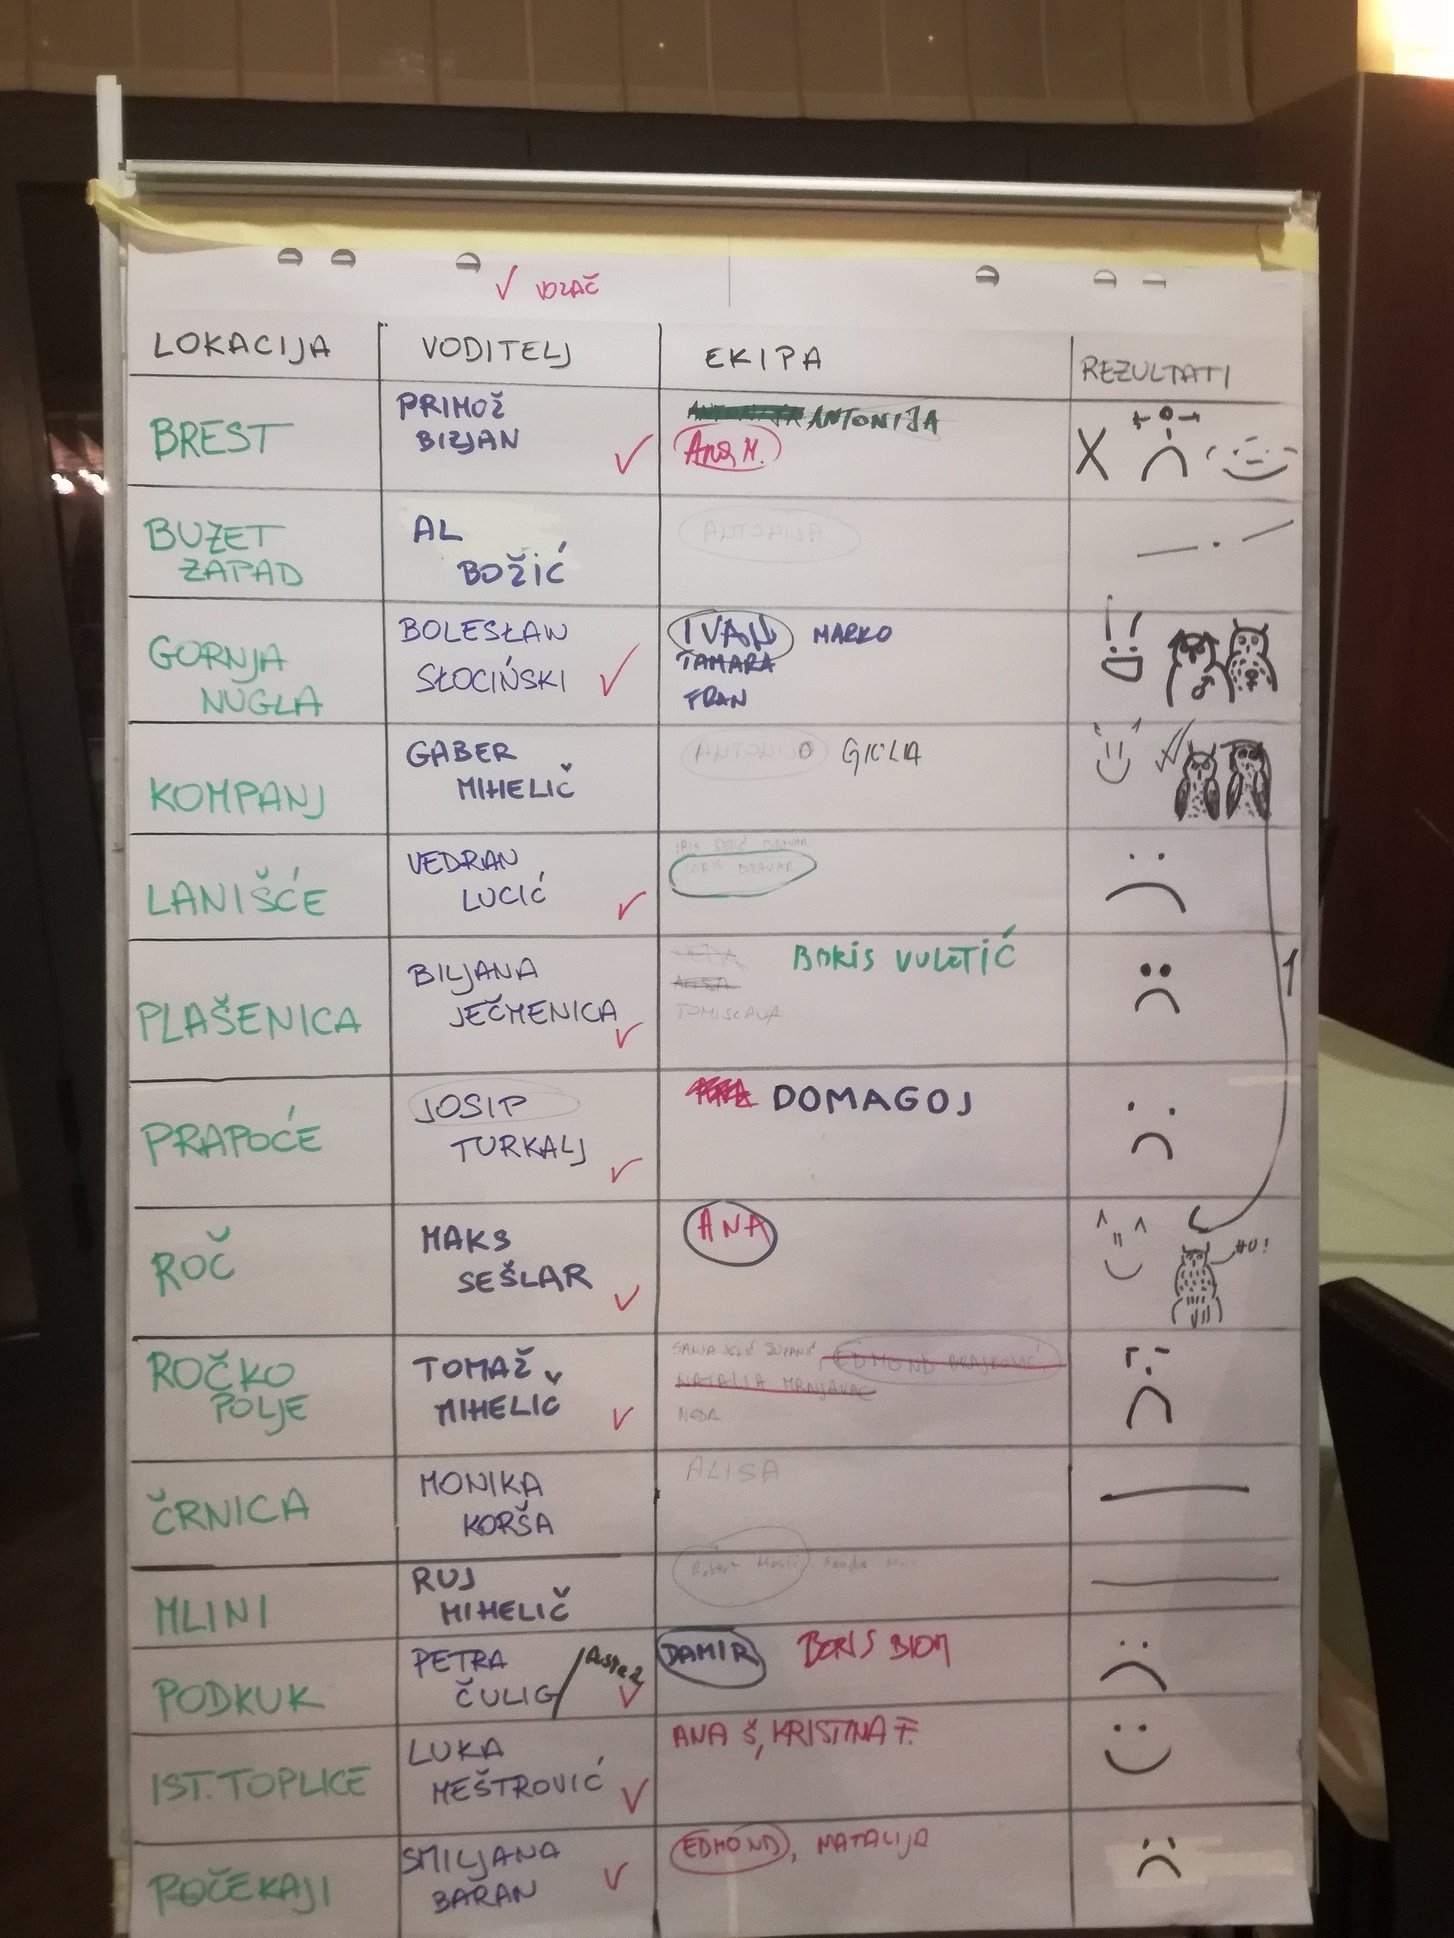 ✓ VOZAČ
LOKACIJA VODITELJ EKIPA REZULTATI
BREST
PRIMOŽ
BIZJAN ✓
ANTONIJA
Ana M.
X
BUZET
ZAPAD
AL
BOŽIĆ
ANTONIJA
GORNJA
NUGLA
BOLESŁAW
SŁOCIŃSKI ✓
IVAN MARKO
TAMARA
FRAN
KOMPANJ
GABER
MIHELIČ
GIULIA
LANIŠĆE
VEDRAN
LUCIĆ ✓
PLAŠENICA
BILJANA
JEČMENICA ✓
BORIS VULETIĆ
ALISA
TOMISLAVA
PRAPOĆE
JOSIP
TURKALJ ✓
DOMAGOJ
1
ROČ
MAKS
SEŠLAR ✓
ANA
HU!
ROČKO
POLJE
TOMAŽ
MIHELIČ ✓
SANJA EDMOND BRAJKOVIĆ
NATALIJA MRNJAVAC
NEDA
ČRNICA
MONIKA
KORŠA
ALISA
MLINI
RUJ
MIHELIČ
Robert
PODKUK
PETRA
ČULIG/ ✓
DAMIR BORIS BIOM
IST. TOPLICE
LUKA
MEŠTROVIĆ ✓
ANA Š, KRISTINA F.
POČEKAJI
SMILJANA
BARAN ✓
EDMOND, NATALIJA